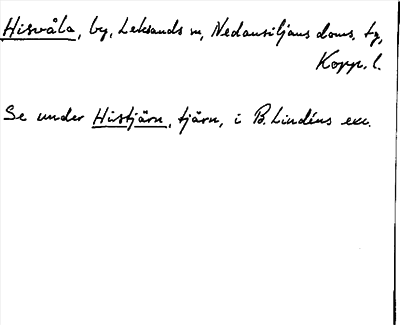 Hisvåla, by, Leksands sn, Nedansiljans doms. tg,
Kopp. l.
Se under Histjärn, tjärn, i B. Lindéns exc.